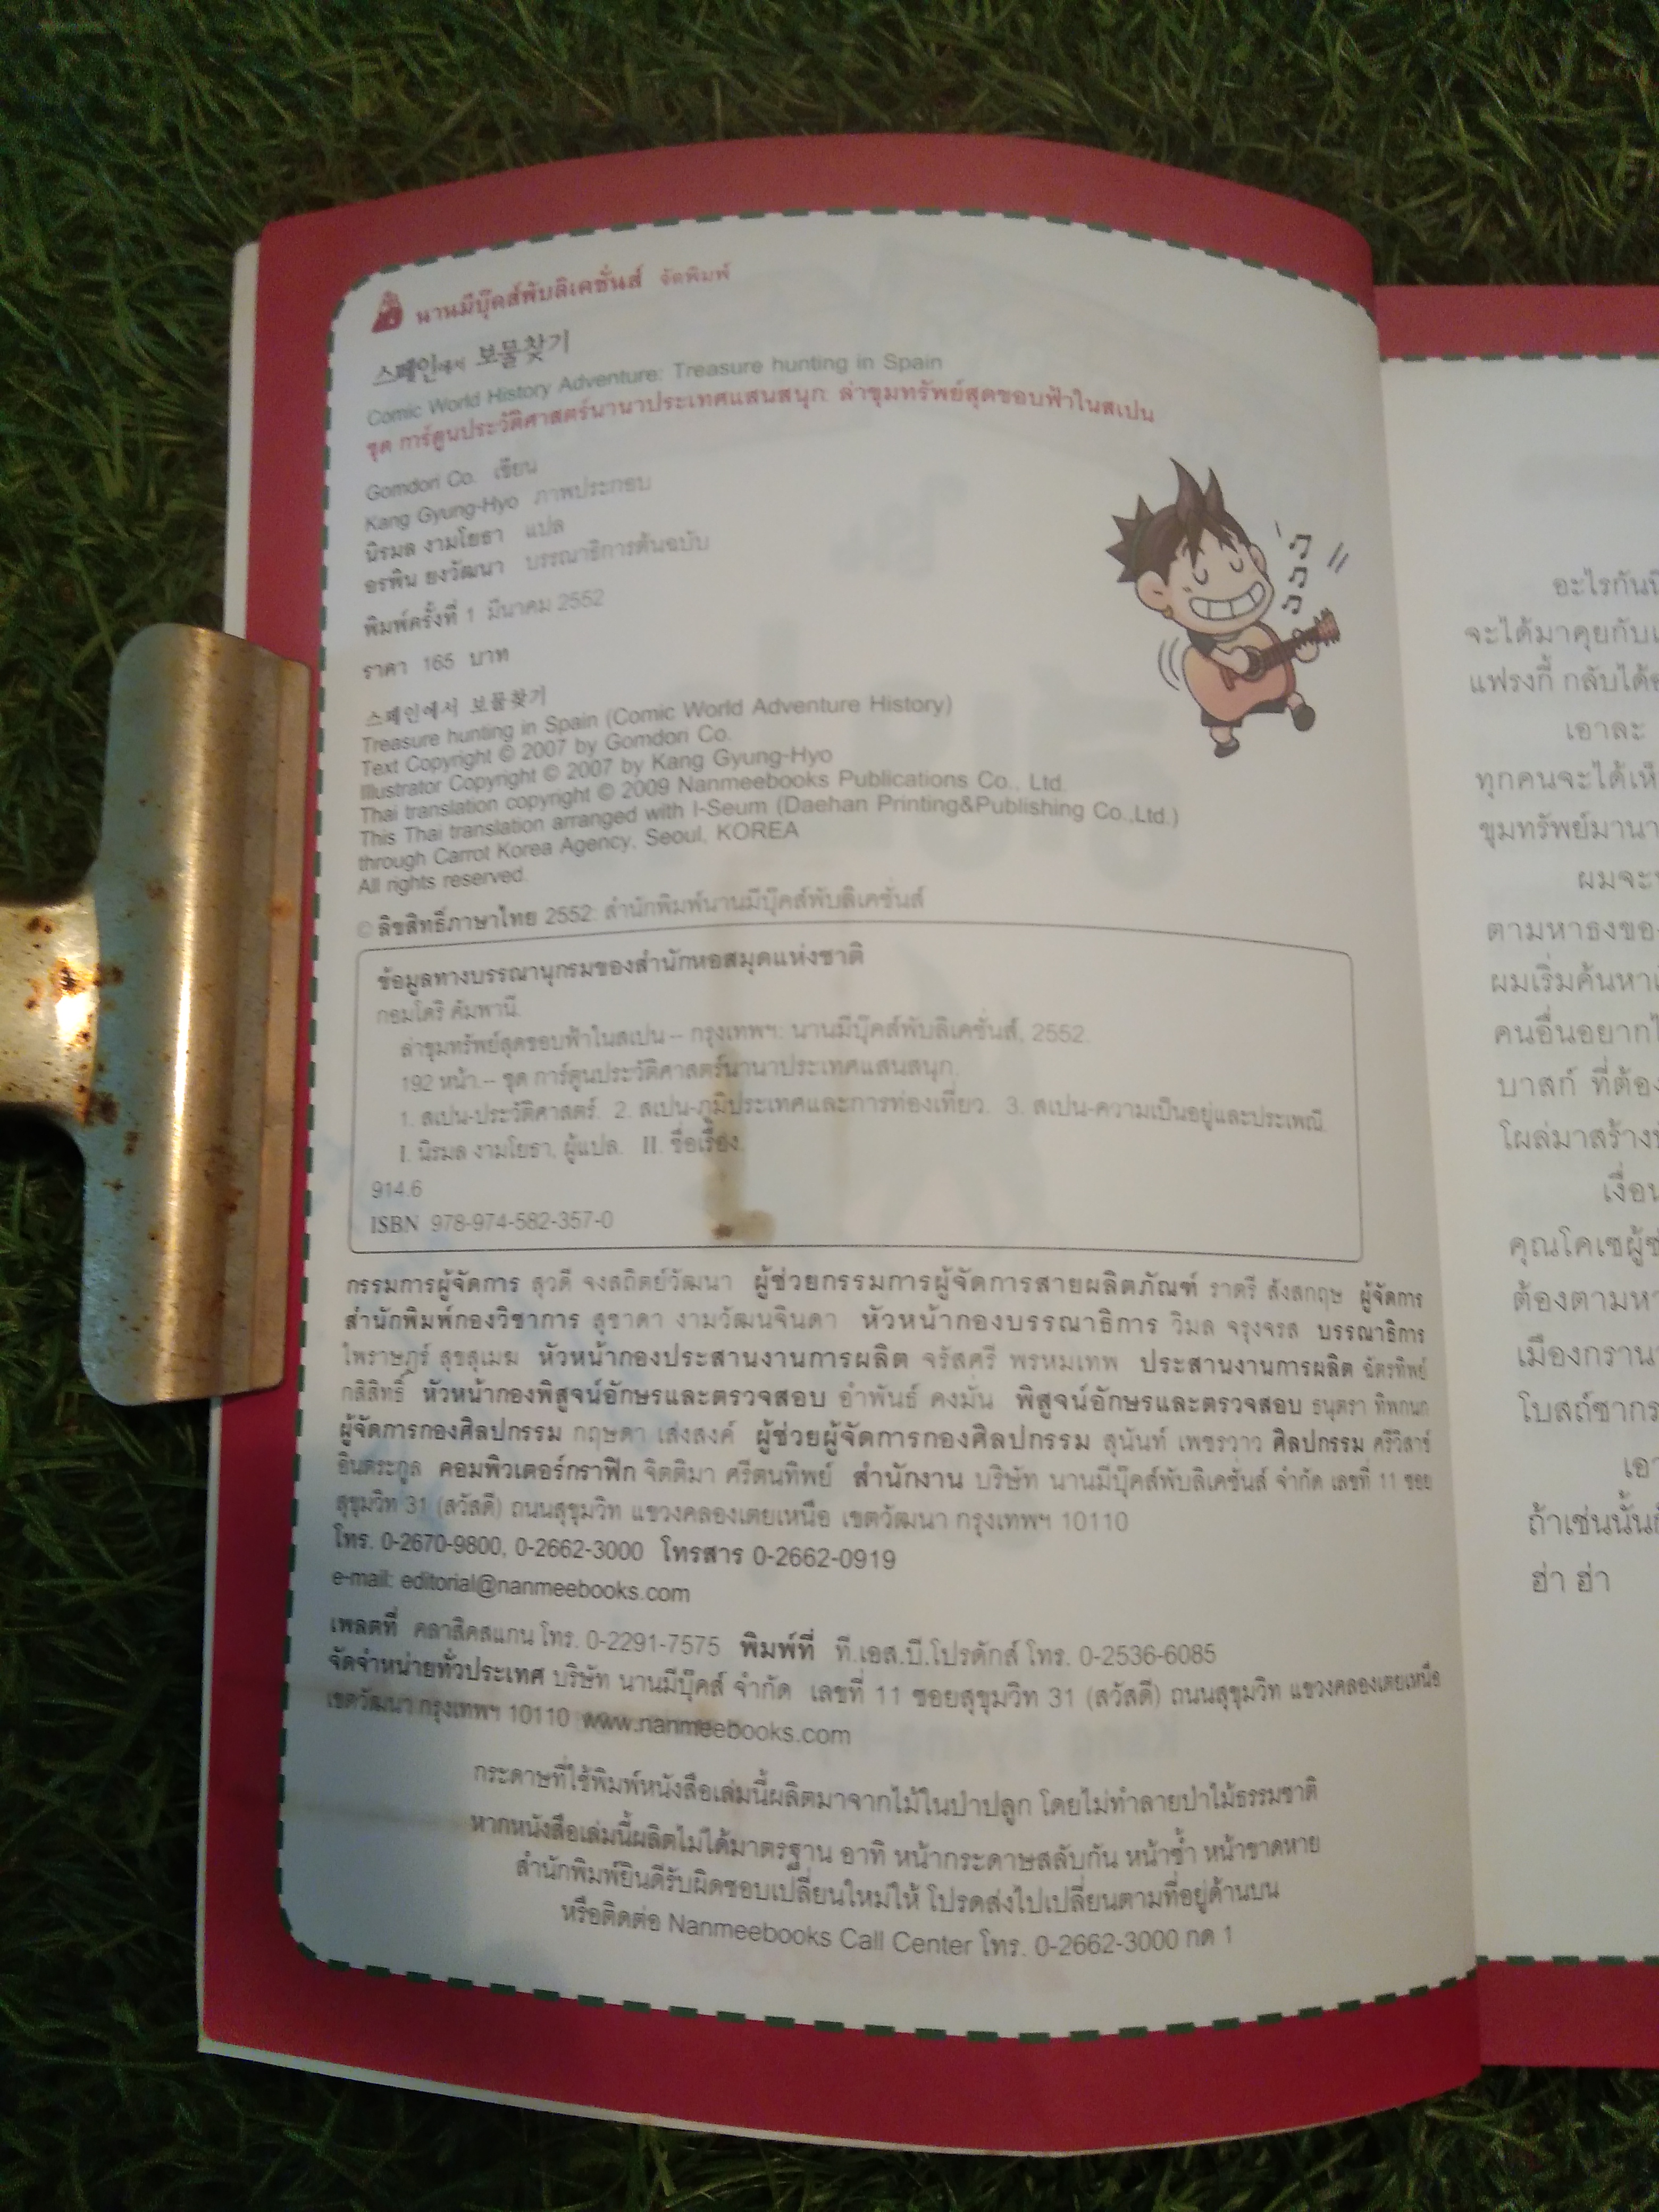 นานมีบุ๊คส์พับลิเคชั่นส์ จัดพิมพ์
스페인에서 보물찾기
Comic World History Adventure: Treasure hunting in Spain
ชุด การ์ตูนประวัติศาสตร์นานาประเทศแสนสนุก: ล่าขุมทรัพย์สุดขอบฟ้าในสเปน
Gomdori Co. เขียน
Kang Gyung-Hyo ภาพประกอบ
นิรมล งามโยธา แปล
อรพิน ยงวัฒนา บรรณาธิการต้นฉบับ
พิมพ์ครั้งที่ 1 มีนาคม 2552
ราคา 165 บาท
스페인에서 보물찾기
Treasure hunting in Spain (Comic World Adventure History)
Text Copyright © 2007 by Gomdori Co.
Illustrator Copyright © 2007 by Kang Gyung-Hyo
Thai translation copyright © 2009 Nanmeebooks Publications Co., Ltd.
This Thai translation arranged with I-Seum (Daehan Printing&Publishing Co.,Ltd.)
through Carrot Korea Agency, Seoul, KOREA
All rights reserved.
© ลิขสิทธิ์ภาษาไทย 2552: สำนักพิมพ์นานมีบุ๊คส์พับลิเคชั่นส์
ข้อมูลทางบรรณานุกรมของสำนักหอสมุดแห่งชาติ
กอมโดริ คัมพานี.
ล่าขุมทรัพย์สุดขอบฟ้าในสเปน -- กรุงเทพฯ: นานมีบุ๊คส์พับลิเคชั่นส์, 2552.
192 หน้า.-- ชุด การ์ตูนประวัติศาสตร์นานาประเทศแสนสนุก.
1. สเปน-ประวัติศาสตร์. 2. สเปน-ภูมิประเทศและการท่องเที่ยว. 3. สเปน-ความเป็นอยู่และประเพณี.
I. นิรมล งามโยธา, ผู้แปล. II. ชื่อเรื่อง.
914.6
ISBN 978-974-582-357-0
กรรมการผู้จัดการ สุวดี จงสถิตย์วัฒนา ผู้ช่วยกรรมการผู้จัดการสายผลิตภัณฑ์ ราตรี สังสกฤษ ผู้จัดการ
สำนักพิมพ์กองวิชาการ สุชาดา งามวัฒนจินดา หัวหน้ากองบรรณาธิการ วิมล จรุงจรส บรรณาธิการ
ไพราษฎร์ สุขสุเมฆ หัวหน้ากองประสานงานการผลิต จรัสศรี พรหมเทพ ประสานงานการผลิต ฉัตรทิพย์
กสิสิทธิ์ หัวหน้ากองพิสูจน์อักษรและตรวจสอบ อำพันธ์ คงมั่น พิสูจน์อักษรและตรวจสอบ ธนุตรา ทิพกนก
ผู้จัดการกองศิลปกรรม กฤษดา เส่งสงค์ ผู้ช่วยผู้จัดการกองศิลปกรรม สุนันท์ เพชรวาว ศิลปกรรม ศรีวิสาร์
อินตระกูล คอมพิวเตอร์กราฟิก จิตติมา ศรีตนทิพย์ สำนักงาน บริษัท นานมีบุ๊คส์พับลิเคชั่นส์ จำกัด เลขที่ 11 ซอย
สุขุมวิท 31 (สวัสดี) ถนนสุขุมวิท แขวงคลองเตยเหนือ เขตวัฒนา กรุงเทพฯ 10110
โทร. 0-2670-9800, 0-2662-3000 โทรสาร 0-2662-0919
e-mail: editorial@nanmeebooks.com
เพลตที่ คลาสิคสแกน โทร. 0-2291-7575 พิมพ์ที่ ที.เอส.บี.โปรดักส์ โทร. 0-2536-6085
จัดจำหน่ายทั่วประเทศ บริษัท นานมีบุ๊คส์ จำกัด เลขที่ 11 ซอยสุขุมวิท 31 (สวัสดี) ถนนสุขุมวิท แขวงคลองเตยเหนือ
เขตวัฒนา กรุงเทพฯ 10110 www.nanmeebooks.com
กระดาษที่ใช้พิมพ์หนังสือเล่มนี้ผลิตมาจากไม้ในป่าปลูก โดยไม่ทำลายป่าไม้ธรรมชาติ
หากหนังสือเล่มนี้ผลิตไม่ได้มาตรฐาน อาทิ หน้ากระดาษสลับกัน หน้าซ้ำ หน้าขาดหาย
สำนักพิมพ์ยินดีรับผิดชอบเปลี่ยนใหม่ให้ โปรดส่งไปเปลี่ยนตามที่อยู่ด้านบน
หรือติดต่อ Nanmeebooks Call Center โทร. 0-2662-3000 กด 1
อะไรกันนี่
จะได้มาคุยกับ
แฟรงกี้ กลับได้
เอาละ
ทุกคนจะได้เห็
ขุมทรัพย์มานา
ผมจะ
ตามหาธงของ
ผมเริ่มค้นหา
คนอื่นอยาก
บาสก์ ที่ต้อง
โผล่มาสร้าง
เงื่อน
คุณโคเซผู้ช่
ต้องตามหา
เมืองกรานา
โบสถ์ซากร
เอา
ถ้าเช่นนั้น
ฮ่า ฮ่า